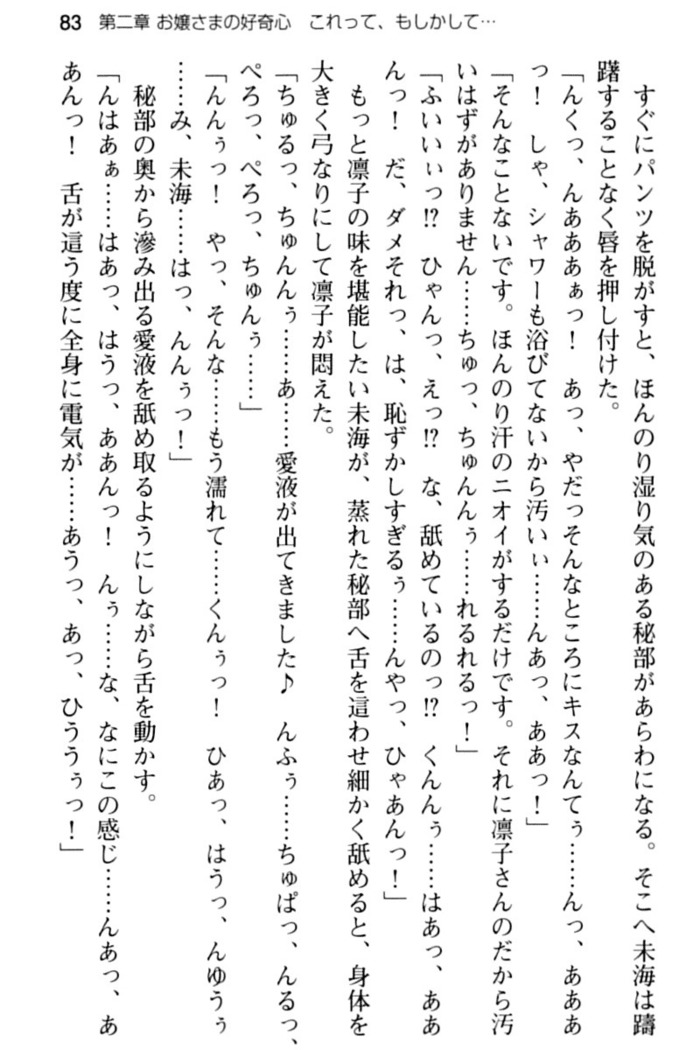 83 第二章 お嬢さまの好奇心　これって、もしかして…
すぐにパンツを脱がすと、ほんのり湿り気のある秘部があらわになる。そこへ未海は躊
躇することなく唇を押し付けた。
「んくっ、んあああぁっ！　あっ、やだっそんなところにキスなんてぅ……んっ、あああ
っ！　しゃ、シャワーも浴びてないから汚いぃ……んあっ、ああっ！」
「そんなことないです。ほんのり汗のニオイがするだけです。それに凛子さんのだから汚
いはずがありません……ちゅっ、ちゅんんぅ……れるれるっ！」
「ふいいぃっ!?　ひゃんっ、えっ!?　な、舐めているのっ!?　くんんぅ……はあっ、ああ
んっ！　だ、ダメそれっ、は、恥ずかしすぎるぅ……んやっ、ひゃあんっ！」
もっと凛子の味を堪能したい未海が、蒸れた秘部へ舌を這わせ細かく舐めると、身体を
大きく弓なりにして凛子が悶えた。
「ちゅるっ、ちゅんんぅ……あ……愛液が出てきました♪　んふぅ……ちゅぱっ、んるっ、
ぺろっ、ぺろっ、ちゅんぅ……」
「んんぅっ！　やっ、そんな……もう濡れて……くんぅっ！　ひあっ、はうっ、んゆうぅ
……み、未海……はっ、んんぅっ！」
秘部の奥から滲み出る愛液を舐め取るようにしながら舌を動かす。
「んはあぁ……はあっ、はうっ、ああんっ！　んぅ……な、なにこの感じ……んあっ、あ
あんっ！　舌が這う度に全身に電気が……あうっ、あっ、ひううぅっ！」